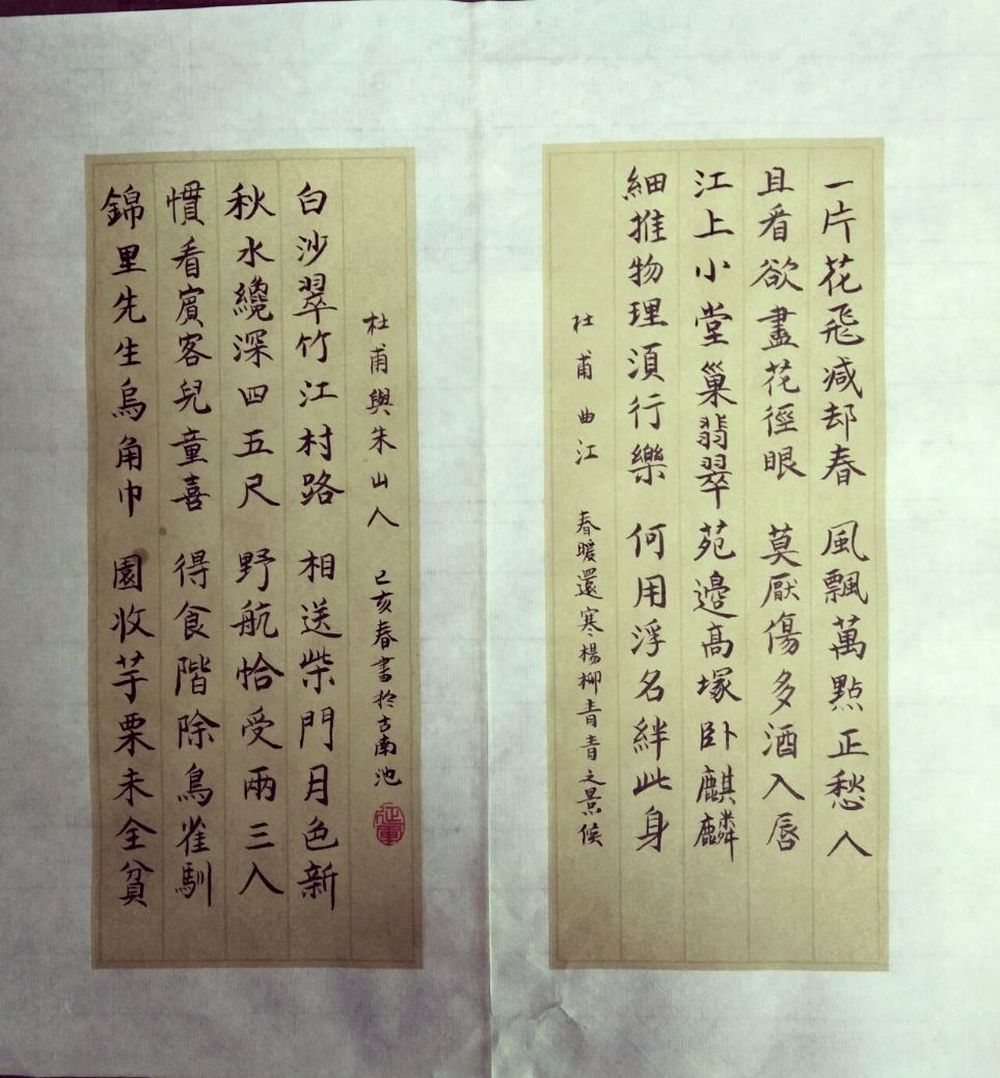 一片花飛減却春 風飄萬點正愁人
且看欲盡花徑眼 莫厭傷多酒入唇
江上小堂巢翡翠 苑邊高塚卧麒麟
細推物理須行樂 何用浮名絆此身
杜甫曲江 春暖還寒楊柳青青之景候
錦里先生烏角巾 園收芋栗未全貧
慣看賓客兒童喜 得食階除鳥雀馴
秋水纔深四五尺 野航恰受兩三人
白沙翠竹江村路 相送柴門月色新
杜甫與朱山人 己亥春書於古南池